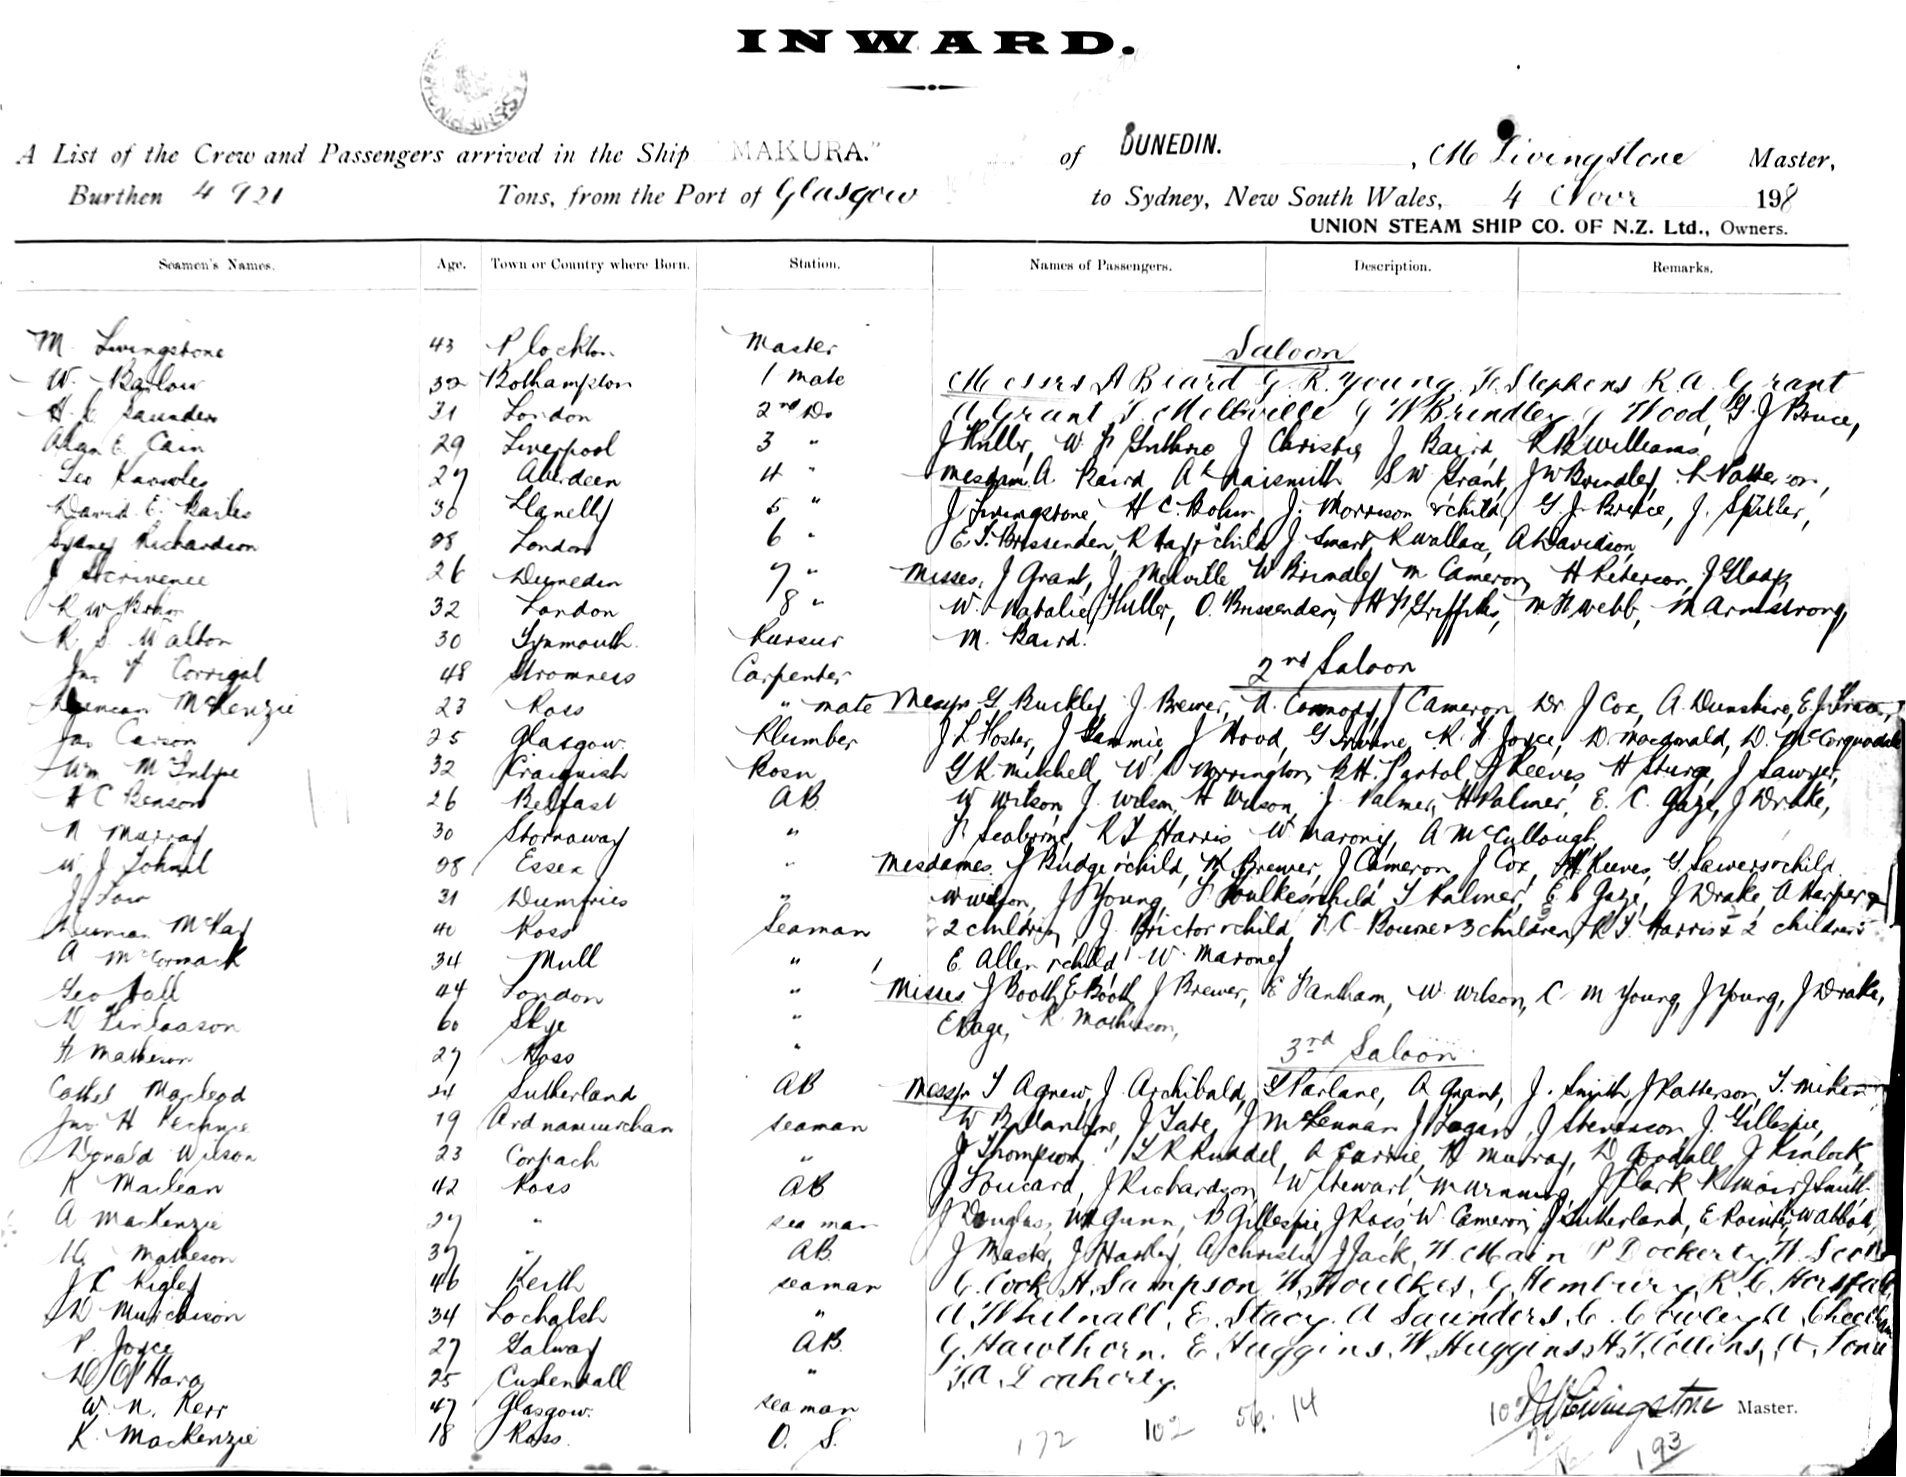 INWARD.
A List of the Crew and Passengers arrived in the Ship "MAKURA." of DUNEDIN. , M Livingstone Master,
Burthen 4921 Tons, from the Port of Glasgow to Sydney, New South Wales, 4 Novr 1908
UNION STEAM SHIP CO. OF N.Z. Ltd., Owners.
Seamen's Names. Age. Town or Country where Born. Station. Names of Passengers. Description. Remarks.
M. Livingstone 43 Plockton Master
Saloon
W. Barlow 32 Master 1 mate
Messrs A Beard G. R. Young, Stephens R. A. Grant
H. Saunders 31 London 2nd Do
A Grant T. Mellville G W Brindley, G Wood, G. J Bruce,
Alan E. Cain 29 Liverpool 3 "
J Fuller, W. Guthrie, J Christie, J Baird, R B Williams
Geo Knowles 27 Aberdeen 4 "
Mesdam. A. Baird, Naismith, S W Grant, J W Brindley,
David E. Bailes 30 Llanelly 5 "
J Livingstone, H C. Bohm, J. Morrison & child, G. J. Bruce, J. Spiller,
Sydney Richardson 28 London 6 "
E. J. Brissenden, R Hay & child J Smart, R Wallace, A Davidson
J Scrivener 26 Dunedin 7 "
Misses. J Grant, J Melville W Brindley M Cameron, H Peterson, J
R W Bohm 32 London 8 "
W. Natalie Fuller, O. Brissenden, H Griffiths, M Webb, M Armstrong,
R. S. Walton 30 Tynmouth Pursur
M. Baird.
Jno Corrigal 48 Stromness Carpenter
2nd Saloon
Duncan McKenzie 23 Ross " mate
Messrs G. Buckley, J. Brewer, J Cameron Dr. J Cox, A. Dunshire, E. J.
Jas Carson 25 Glasgow Plumber
J L Foster, J Gammie, J Hood, G Irvine, R. H. Joyce, D. Macdonald, D. McCorquodale
Wm McIntyre 32 Craignish Bosn
G R. Mitchell, W. Norrington, J Reeves, H Sturge, J Sawyer,
H C Benson 26 Belfast AB.
W Wilson, J. Wilson, H Wilson, J. Palmer, H Palmer, E. C. Gaze, J Drake,
N Murray 30 Stornaway "
Seabrine, R J Harris W. Maroney, A McCullough
W J 28 Essex "
Mesdames. J Budge & child, Brewer, J Cameron, J Cox, Reeves, G Sawers & child.
J. Low 31 Dumfries "
W Wilson, J Young, Foulkes & child, T Palmer, E C Gaze, J Drake, A Harper &
Duncan McKay 40 Ross Seaman
2 children, J. Brictor & child, C Bourne & 3 children, R J. Harris & 2 children
A McCormack 34 Mull "
E. Allen & child W. Maroney
Geo Hall 44 London "
Misses J Booth, E Booth, J Brewer, E Pantham, W. Wilson, C. M Young, J Young, J Drake,
Finlaason 60 Skye "
E Gage, R. Matherson,
Matheson 27 Ross "
3rd Saloon
Macleod 24 Sutherland AB
Messrs T Agnew, J. Archibald, G Parlane, A Grant, J. Smith J Patterson, T.
Jno H 19 Ardnamurchan Seaman
W Ballantyne, J Tate, J McLennan J Logan, J Stevenson J. Gillespie,
Donald Wilson 23 Corpach "
J Thompson, R Ruddel, A Carrie, H Murray, D Goodall J Kinlock,
K Maclean 42 Ross AB
J Richardson, W Stewart, J Clark, R Moir J Smith
A MacKenzie 27 " sea man
J Douglas, W Gunn, D Gillespie, J Ross, W. Cameron, J Sutherland, E W Abbott,
Matheson 37 " AB.
J Mack, J Hartley, A Christie, J Jack, W. Main P Dockerty, W. Scott
J. C Rigley 46 Keith seaman
C. Cook, H. Sampson, W. Foulkes, G. Hembury, R. C. Horsfall
D Murchison 34 Lochalsh "
A. Whitnall, E. Stacy, A Saunders, C. Cowley, A
P. Joyce 27 Galway AB.
G. Hawthorn. E. Huggins. W. Huggins. H. T. Collins,
D O'Hara 25 Cushendall "
T. A. Docherty.
W. N. Kerr 47 Glasgow. seaman
M Livingstone Master.
K. MacKenzie 18 Ross. O. S.
172 102 56. 14 193